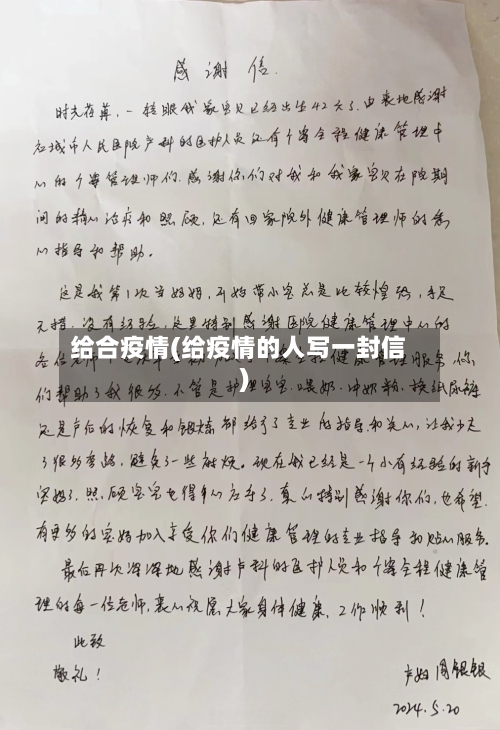 感谢信.
时光荏苒，一转眼我家宝贝已经出生42天了.由衷地感谢
应城市人民医院产科的医护人员还有个案全程健康管理中
心的个案管理师们.感谢你们对我和我家宝贝在院期
间的精心治疗和照顾.还有回家院外健康管理师的悉
心指导和帮助.
这是我第1次当妈妈，刚开始带小宝总是比较
无措.没有经验，这里特别感谢医院健康管理中心的
给合疫情(给疫情的人写一封信
)
服务.你
们帮助了我很多.不管是护理宝宝.喂奶.冲奶粉.换纸尿裤
还是产后的恢复和锻炼都给了专业的指导和关心，让我少走
了很多弯路.避免了一些麻烦.现在我已经是一个小有经验的新手
宝妈了.照顾宝宝也得心应手了.真的特别感谢你们.也希望
有更多的宝妈加入享受你们健康管理的专业指导和贴心服务.
最后再次深深地感谢产科的医护人员和个案全程健康管
理的每一位老师，衷心祝愿大家身体健康，工作顺利！
此致
敬礼！
产妇 周银银
2024.5.20